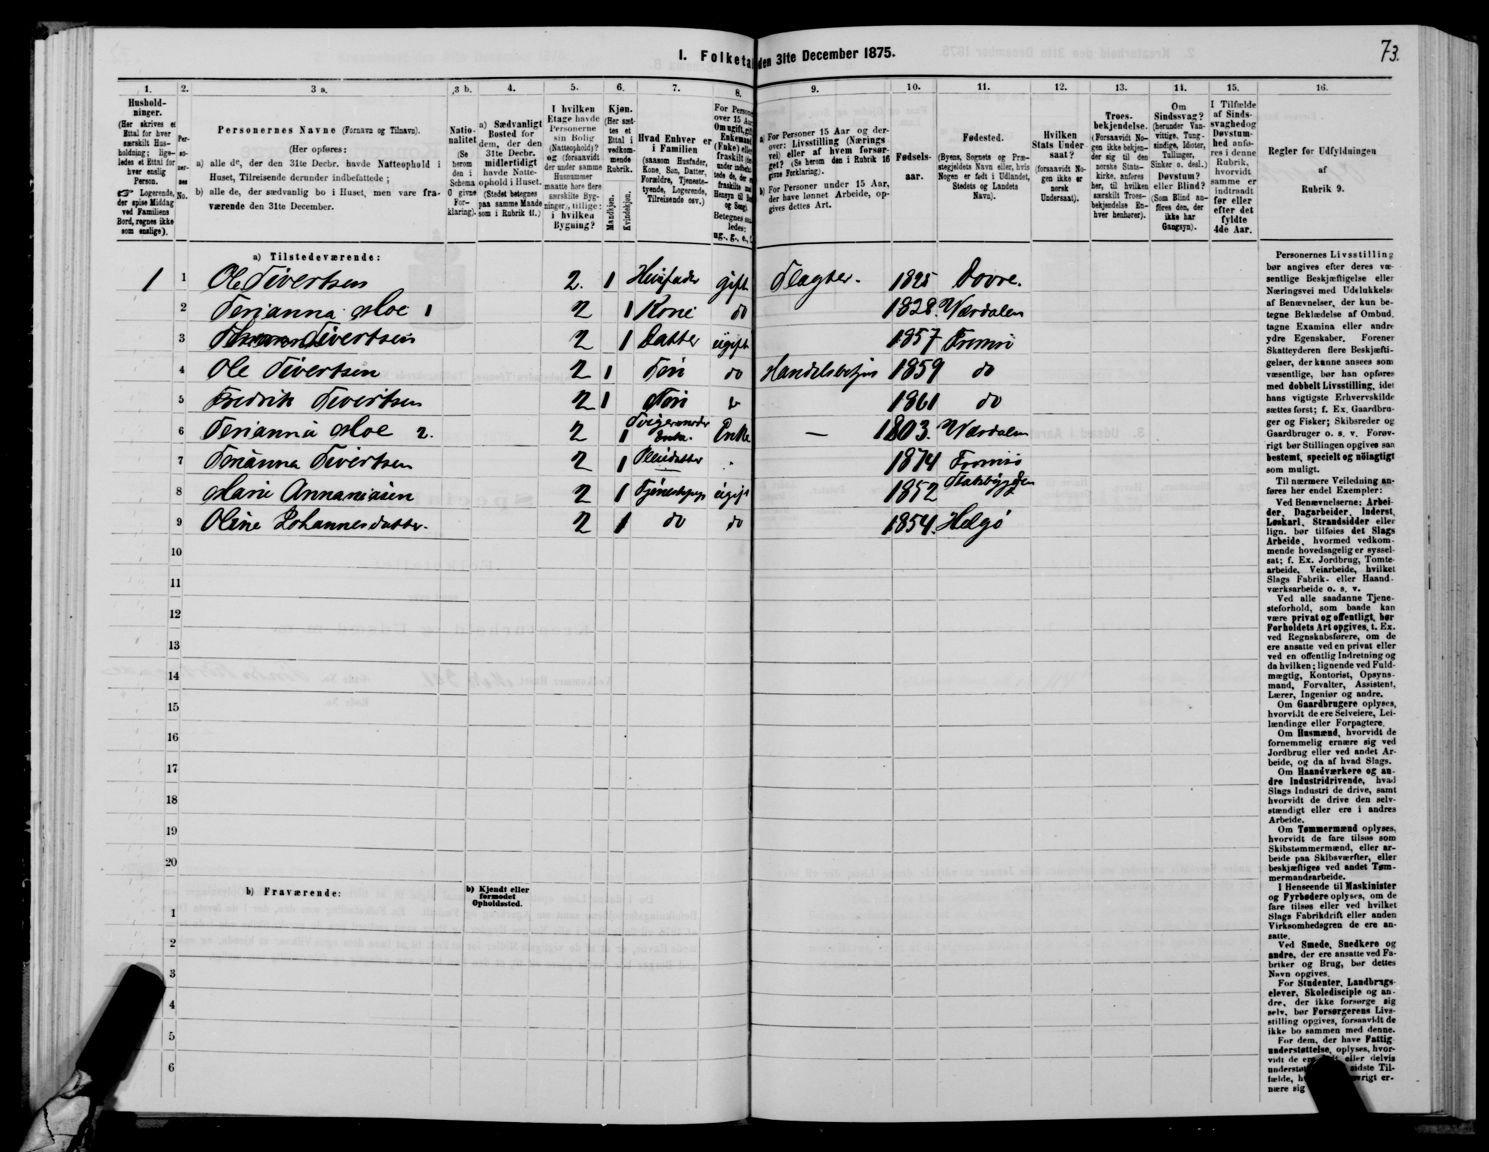 I. Folketa den 31te December 1875.
73.
1. 2. 3 a. 3 b. 4. 5. 6. 7. 8. 9. 10. 11. 12. 13. 14. 15. 16.
Hushold-
ninger.
(Her skrives et
Ettal for hver
særskilt Hus-
holdning; lige-
ledes et Ettal for
hver enslig
Person.
☞ Logerende,
der spise Middag
ved Familiens
Bord, regnes ikke
som enslige).
Per-
so-
ner-
nes
No.
Personernes Navne (Fornavn og Tilnavn).
(Her opføres:
a) alle de, der den 31te Decbr. havde Natteophold i
Huset, Tilreisende derunder indbefattede;
b) alle de, der sædvanlig bo i Huset, men vare fra-
værende den 31te December.
Natio-
nalitet
(Se
herom
den i
Schema
O givne
For-
klaring).
a) Sædvanligt
Bosted for
dem, der den
31te Decbr.
midlertidigt
havde Natte-
ophold i Huset.
(Stedet betegnes
paa samme Maade
som i Rubrik 11.)
I hvilken
Etage havde
Personerne
sin Bolig
(Natteophold)?
og (forsaavidt
der under samme
Husnummer
maatte høre flere
særskilte Byg-
ninger), tillige:
i hvilken
Bygning?
Kjøn.
(Her sæt-
tes et
Ettal i
vedkom-
mende
Rubrik.
Mandkjøn.
Kvindekjøn.
Hvad Enhver er
i Familien
(saasom Husfader,
Kone, Søn, Datter,
Forældre, Tjeneste-
tyende, Logerende,
Tilreisende osv.)
For Persone
over 15 Aar
Om ugift, gif
Enkemand
(Enke) elle
fraskilt
a) For Personer 15 Aar og der-
over: Livsstilling (Nærings
vei) eller af hvem forsør-
get? (Se herom den i Rubrik 16
givne Forklaring).
b) For Personer under 15 Aar,
der have lønnet Arbeide, op-
gives dettes Art.
Fødsels-
aar.
Fødested.
(Byens, Sognets og Præ-
stegjeldets Navn eller, hvis
Nogen er født i Udlandet,
Stedets og Landets
Navn).
Hvilken
Stats Under-
saat?
(forsaavidt No-
gen ikke er
norsk
Undersaat).
Troes-
bekjendelse.
(Forsaavidt No-
gen ikke bekjen-
der sig til den
norske Stats-
kirke, anføres
her, til hvilken
særskilt Troes-
bekjendelse En-
hver henhører).
Om
Sindssvag?
(herunder Van-
vittige, Tung-
sindige, Idioter,
Tullinger,
Sinker o. desl.)
Døvstum?
eller Blind?
(Som Blind an-
føres den, der
ikke har
Gangsyn).
I Tilfælde
af Sinds-
svaghed og
Døvstum-
hed anfø-
res i denne
Rubrik,
hvorvidt
samme er
indtraadt
før eller
efter det
fyldte
4de Aar.
Regler for Udfyldningen
af
Rubrik 9.
a) Tilstedeværende:
1 1 Ole Sivertsen 2. 1 Husfader gift Slagter. 1825 Dovre.
2 Serianna Moe 1 2 1 Kone do 1828. Værdalen
3 Sivertsen 2 1 Datter ugift 1857 Tromsø
4 Ole Sivertsen 2 1 Søn do Handelsbetjent 1859 do
5 Fredrik Sivertsen 2 1 Søn 1861 do
6 Serianna Moe 2. 2 1 Enke — 1803. Værdalen
7 Serianna Sivertsen 2 1 Pleiedatter 1874 Tromsø
8 Marie Annaniasen 2 1 Tjenestepige ugift 1852 Statsbygden
9 Oline Johannesdatter. 2 1 do do 1854. Helgø
10
11
12
13
14
15
16
17
18
19
20
b) Fraværende:
b) Kjendt eller
formodet
Opholdssted.
1
2
3
4
5
6
Personernes Livsstilling
bør angives efter deres væ-
sentlige Beskjæftigelse eller
Næringsvei med Udelukkelse
af Benævnelser, der kun be-
tegne Beklædelse af Ombud,
tagne Examina eller andre
ydre Egenskaber. Forener
Skatteyderen flere Beskjæfti-
gelser, der kunne ansees som
væsentlige, bør han opføres
med dobbelt Livsstilling, idet
hans vigtigste Erhvervskilde
sættes først; f. Ex. Gaardbru-
ger og Fisker; Skibsreder og
Gaardbruger o. s. v. Forøv-
rigt bør Stillingen opgives saa
bestemt, specielt og nøiagtigt
som muligt.
Til nærmere Veiledning an-
føres her endel Exempler:
Ved Benævnelserne: Arbei-
der, Dagarbeider, Inderst,
Løskarl, Strandsidder eller
lign. bør tilføies det Slags
Arbeide, hvormed vedkom-
mende hovedsagelig er syssel-
sat; f. Ex. Jordbrug, Tomte-
arbeide, Veiarbeide, hvilket
Slags Fabrik- eller Haand-
værksarbeide o. s. v.
Ved alle saadanne Tjene-
steforhold, som baade kan
være privat og offentligt, bør
Forholdets Art opgives, t. Ex.
ved Regnskabsførere, om de
ere ansatte ved en privat eller
ved en offentlig Indretning og
da hvilken; lignende ved Fuld-
mægtig, Kontorist, Opsyns-
mand, Forvalter, Assistent,
Lærer, Ingeniør og andre.
Om Gaardbrugere oplyses,
hvorvidt de ere Selveiere, Lei-
lændinge eller Forpagtere.
Om Husmænd, hvorvidt de
fornemmelig ernære sig ved
Jordbrug eller ved andet Ar-
beide, og da af hvad Slags.
Om Haandværkere og an-
dre Industridrivende, hvad
Slags Industri de drive, samt
hvorvidt de drive den selv-
stændigt eller ere i andres
Arbeide.
Om Tømmermænd oplyses,
hvorvidt de fare tilsøs som
Skibstømmermænd, eller ar-
beide paa Skibsværfter, eller
beskjæftiges ved andet Tøm-
mermandsarbeide.
I Henseende til Maskinister
og Fyrbødere oplyses, om de
fare tilsøs eller ved hvilket
Slags Fabrikdrift eller anden
Virksomhedsgren de ere an-
satte.
Ved Smede, Snedkere og
andre, der ere ansatte ved Fa-
briker og Brug, bør dettes
Navn opgives.
For Studenter, Landbrugs-
elever, Skoledisciple og an-
dre, der ikke forsørge sig
selv, bør Forsørgerens Livs-
stilling opgives, forsaavidt de
ikke bo sammen med denne.
For dem, der have Fattig-
understøttelse, oplyses, hvor-